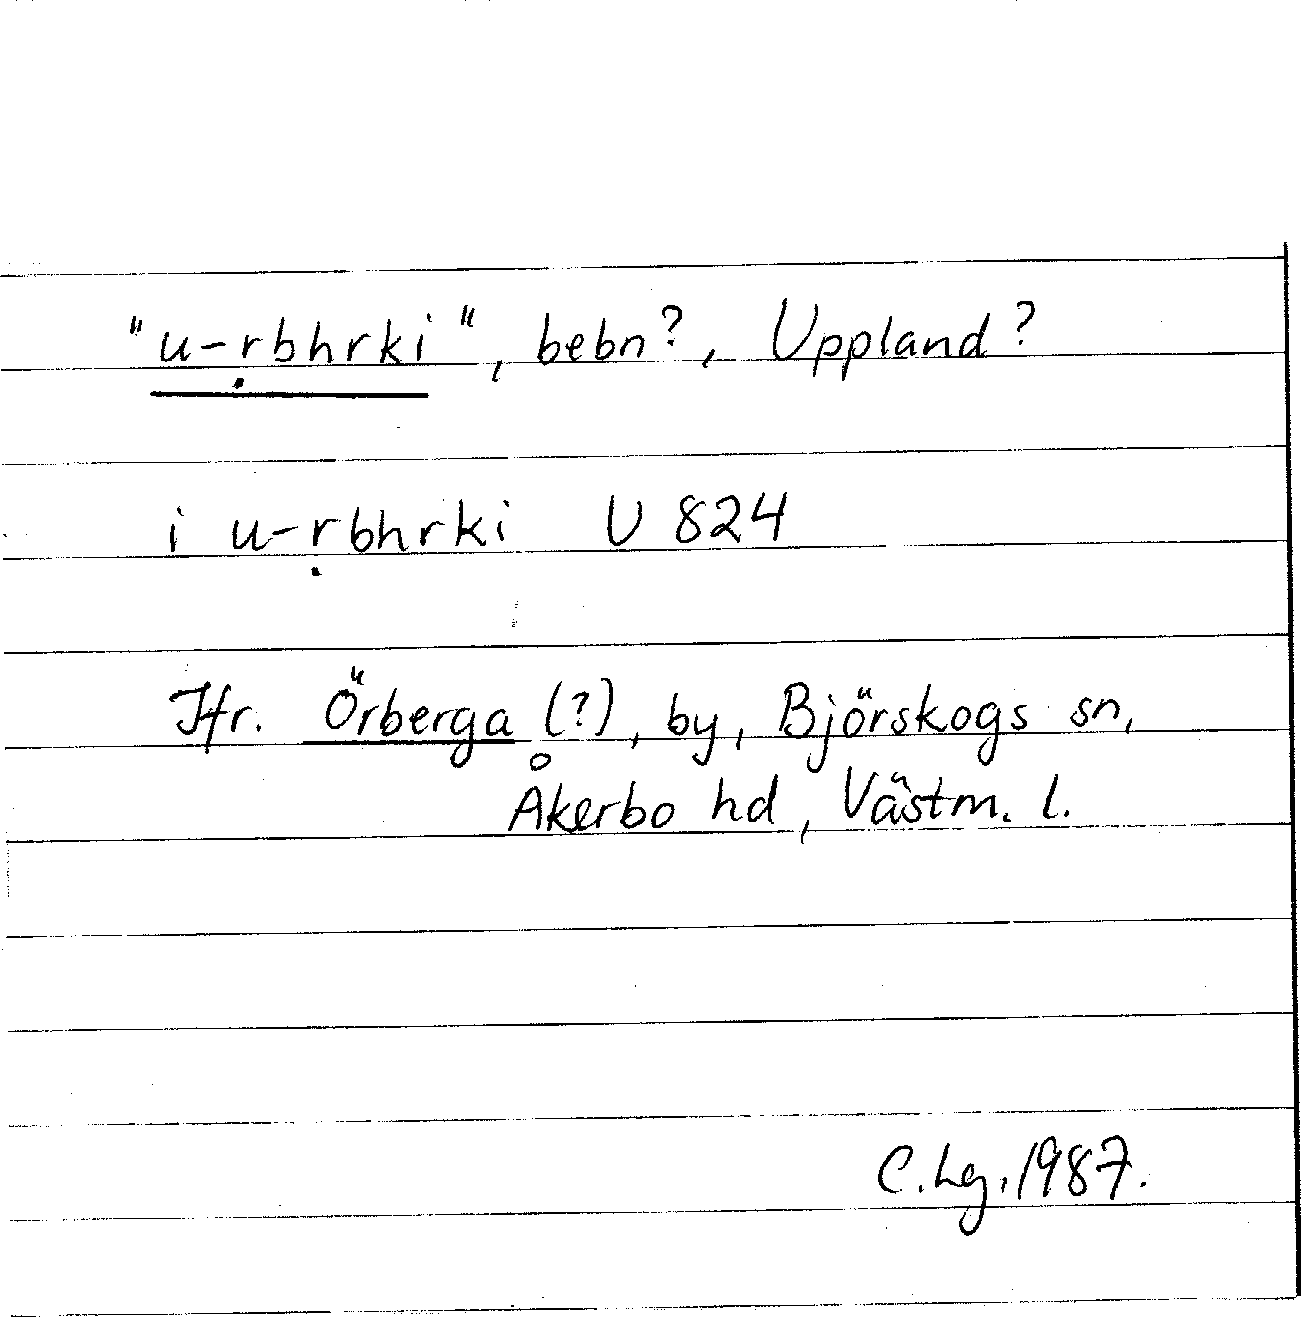 "u-ṛbhrki", bebn?, Uppland?
i u-ṛbhrki U 824
Jfr. Örberga (?), by, Björskogs sn,
Åkerbo hd, Västm. l.
C. Lg. 1987.